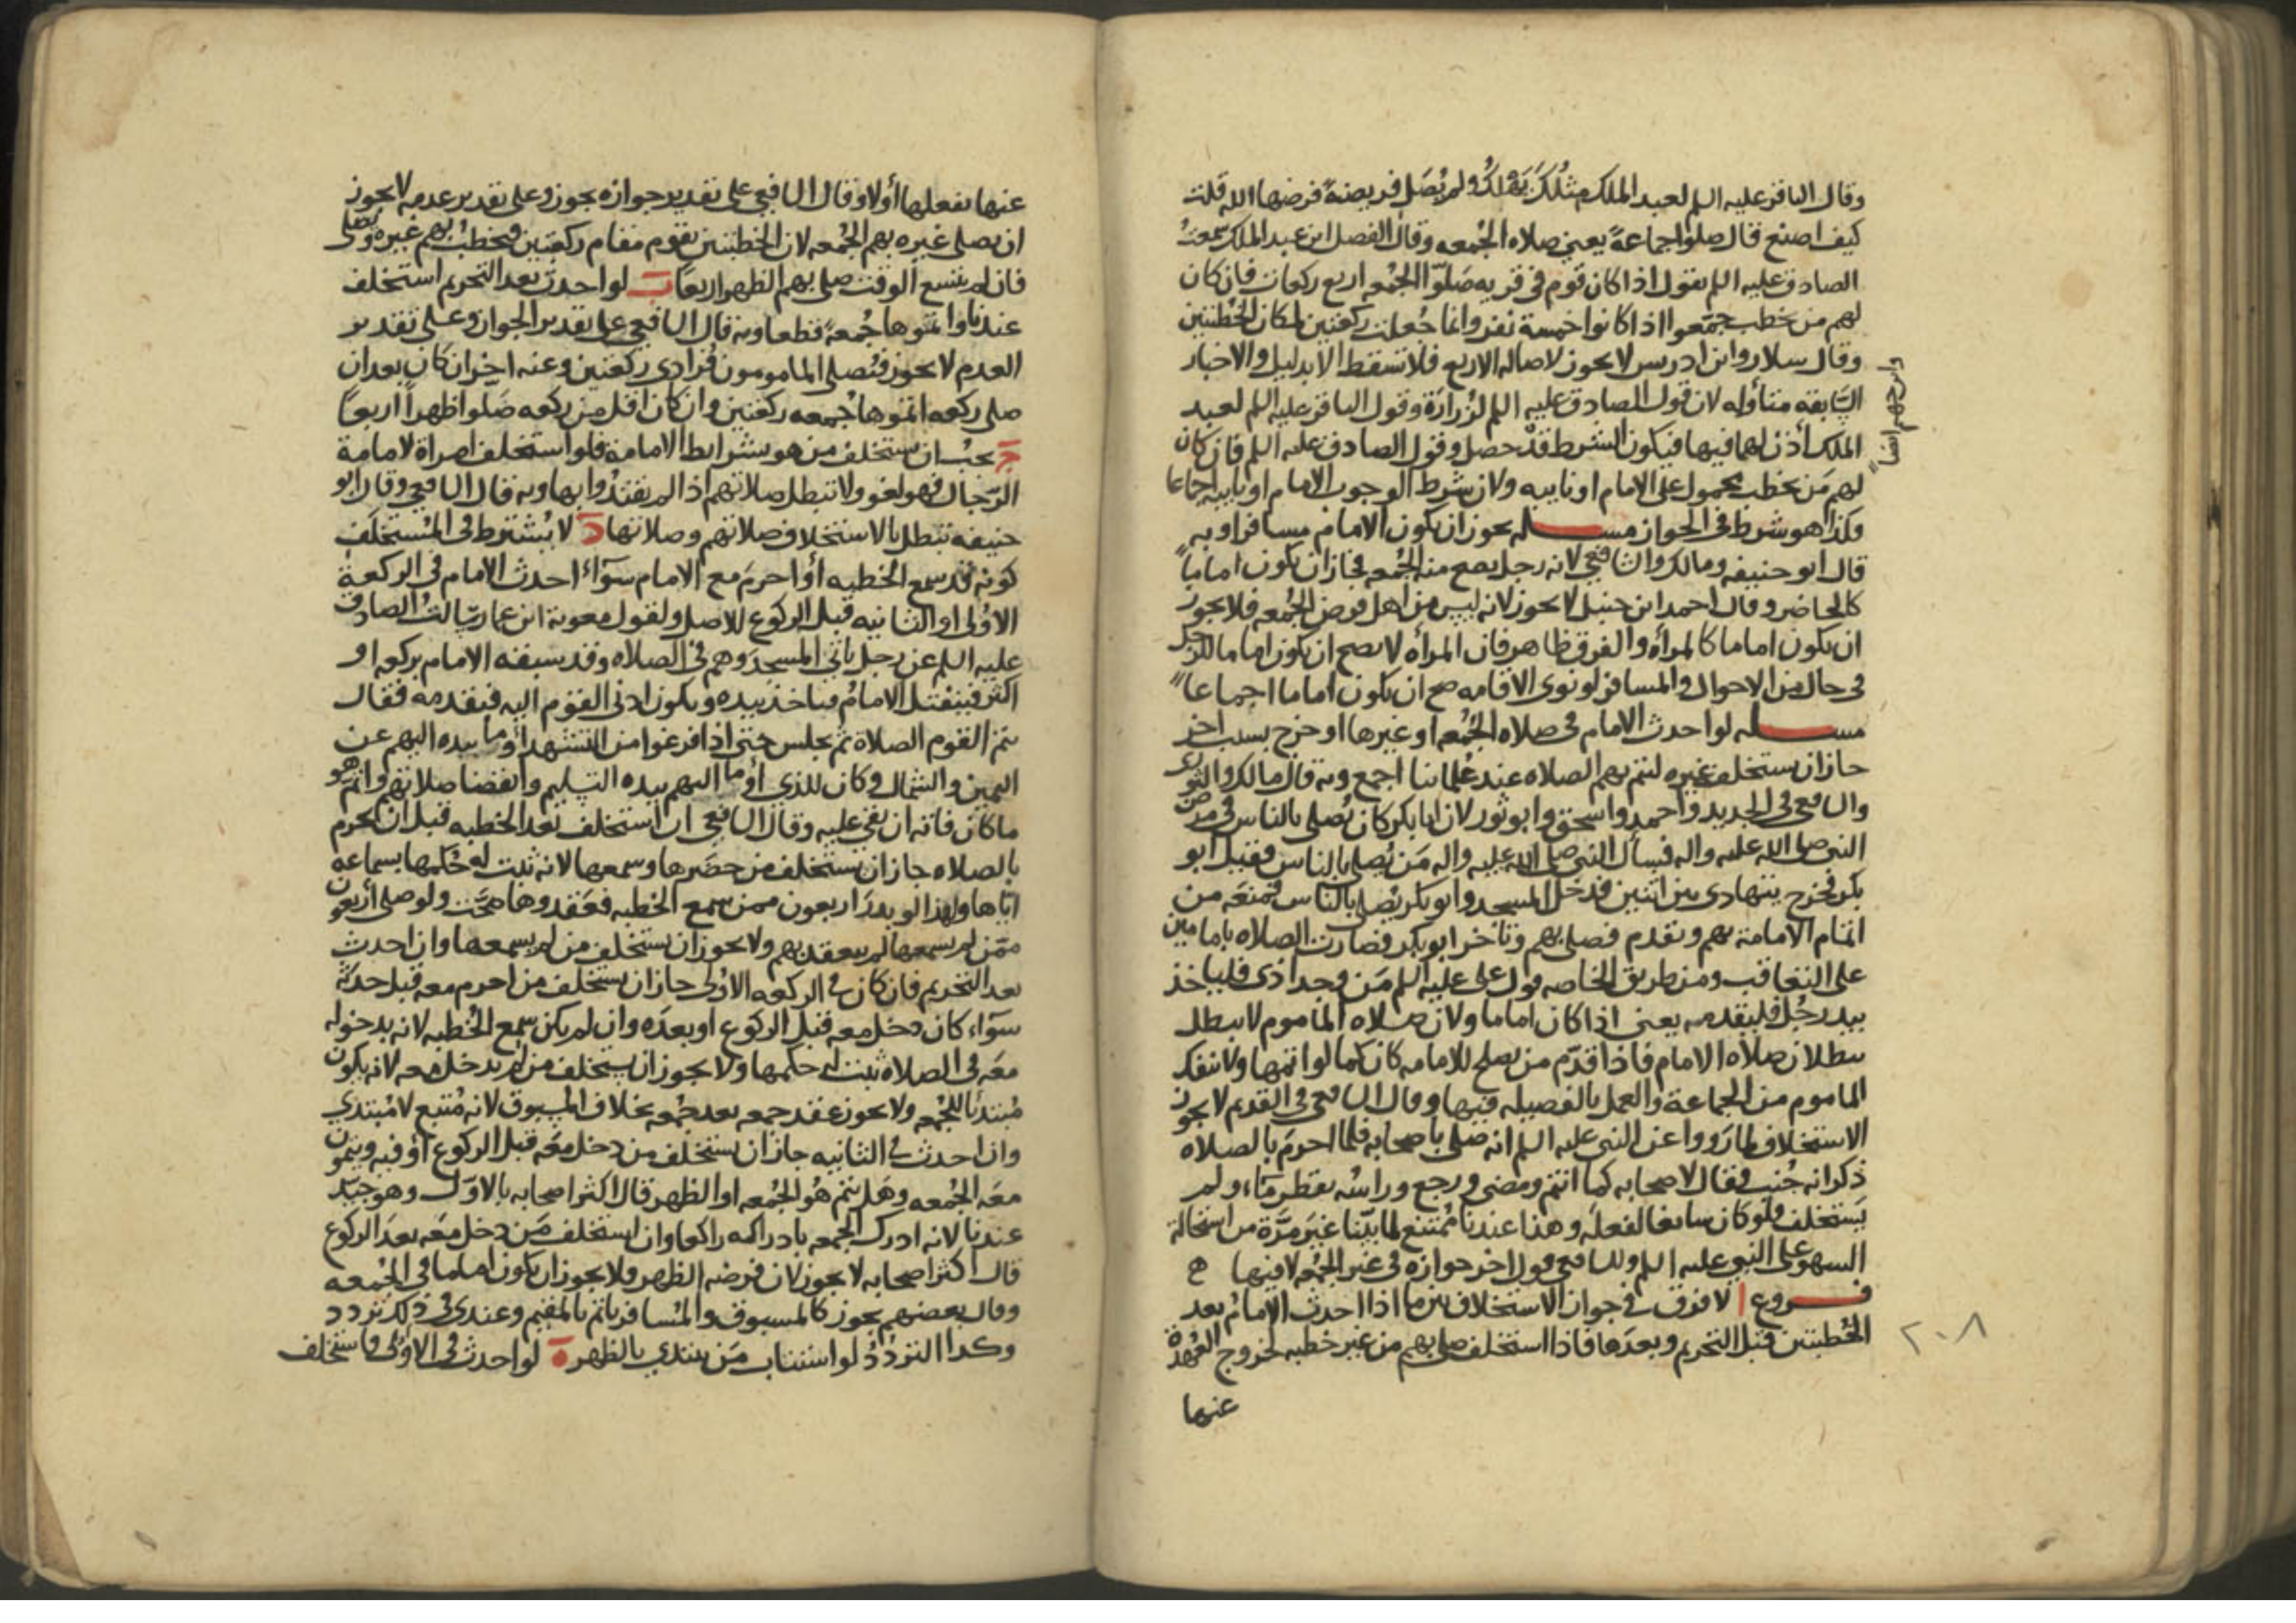 وقال الباقر عليه السلم لعبد الملك مثلك يهلك ولم يُصَلِّ فريضةً فرضها الله قلت
كيف اصنع قال صلوا جماعةً يعني صلاه الجُمعه وقال الفضل ابن عبد الملك سمعتُ
الصادق عليه السلم يقول اذا كان قوم في قريه صَلّوا الجُمعه اربع ركعات فان كان
لهم من يخطب جمّعوا اذا كانوا خمسة نفر وانما جُعلت ركعتين لمكان الخُطبتين
وقال سلار وابن ادريس لا يجوز لاصاله الاربع فلا تسقط الا بدليل والاخبار
السّابقه متأوله لان قول الصادق عليه السلم لزُرارَة وقول الباقر عليه السلم لعبد
الملك أذن لهما فيها فيكون الشرط قد حصل وقول الصادق عليه السلم فان كان
لهم مَن يخطب محمول على الامام او نايبه ولان شرط الوجوب الامام او نايبه اجماعا
فكذا هو شرط في الجواز مسله يجوز ان يكون الامام مسافرا وبه
قال ابو حنيفه ومالك والشافعي لانه رجل يصح منه الجُمعه فجاز ان يكون اماماً
كالحاضر وقال احمد ابن حنبل لا يجوز لانه ليس من اهل فرض الجُمعه فلا يجوز
ان يكون اماما كالمرأه والفرق ظاهر فان المرأه لا يصح ان يكون اماما للرجل
في حال من الاحوال والمسافر لو نوى الاقامه صح ان يكون اماما اجماعا
مسله لو احدث الامام في صلاه الجُمعه او غيرها او خرج بسبب اخر
جاز ان يستخلف غيره ليتم بهم الصلاه عند علمائنا اجمع وبه قال مالك والثوري
والشافعي في الجديد واحمد واسحق وابو ثور لان ابا بكر كان يُصلي بالناس في مرض
النبي صلى الله عليه واله فسأل النبي صلى الله عليه واله مَن يُصلي بالناس فقيل ابو
بكر فخرج يتهادى بين اثنين فدخل المسجد وابو بكر يُصلي بالناس فمنعَه من
اتمام الامامة بهم وتقدم فصلى بهم وتاخر ابو بكر فصارت الصلاه بامامين
على التعاقب ومن طريق الخاصه قول علي عليه السلم مَن وجد اذى فلياخذ
بيد رجُل فليقدمه يعني اذا كان اماما ولان صلاه المأموم لا تبطل
ببطلان صلاه الامام فاذا قدّم من يصلح للامامه كان كما لو اتمها ولا ينفك
الماموم من الجماعة والعمل بالفضيله فيها وقال الشافعي في القديم لا يجوز
الاستخلاف لما رَووا عن النبي عليه السلم انه صَلى باصحابه فلما احرم بالصلاه
ذكر انه جُنب فقال لاصحابه كما انتم ومضى ورجع وراسُه يقطر مآء ولم
يَستخلف ولو كان سائغا لفعلَه وهذا عندنا مُمتنع لما بيّنا غيرَ مرَّة من استحالة
السهو على النبي عليه السلم وللشافعي قول اخر جوازه في غير الجُمعه لا فيها ھ
فروع ا لا فرق في جواز الاستخلاف بين ما اذا احدث الامامُ بعد
الخُطبتين قبل التحريم وبعدَها فاذا استخلف صلى بهم من غير خطبه لخروج العُهدة
عنها
وابن جهم ايضا
٢٠٨
عنها بفعلها أولا وقال الشافعي على تقدير جوازه يجوز وعلى تقدير عدمه لا يجوز
ان يصلي غيره بهم الجُمعه لان الخطبتين تقوم مقام ركعتين فيخطبُ بهم غيره ويصلي
فان لم يتسع الوقت صلى بهم الظهر اربعًا ب لو احدث بعد التحريم استخلف
عندنا واتموها جُمعهً قطعا وبه قال الشافعي على تقدير الجواز وعلى تقدير
العدم لا يجوز فيُصلي المامومون فُرادى ركعتين وعنه اخر ان كان بعد ان
صلى ركعه اتموها جُمعه ركعتين وان كان اقل من ركعه صَلوا ظهراً اربعاً
ج يجبُ ان يستخلف من هو بشرايط الامامة فلو استخلف امراة لامامة
الرّجال فهو لغو ولا تبطل صلاتهم اذا لم يقتدُوا بها وبه قال الشافعي وقال ابو
حنيفه تبطل بالاستخلاف صلاتهم وصلاتها د لا يُشترط في المُستخلَف
كونه قد سمع الخطبه أو احرمَ مع الامام سوآء احدث الامام في الركعة
الاوُلى او الثانيه قبل الركوع للاصل ولقول معوية ابن عمار سالتُ الصادق
عليه السلم عن رجل ياتي المسجدَ وهم في الصلاه وقد سبقه الامام بركعه او
اكثر فينفتل الامامُ فياخذ بيده ويكون ادنى القوم اليه فيقدمه فقال
يتم القوم الصلاة ثم يجلس حتى اذا فرغوا من التشهد أومأ بيده اليهم عن
اليمين والشمال وكان الذي أومأ اليهم بيده التسليم وانقضا صلاتهم واتم هو
ما كان فاته ان بقي عليه وقال الشافعي ان استخلف بعد الخطبه قبل ان يحرم
بالصلاه جاز ان يستخلف من حضَرها وسمعها لانه ثبت له حُكمها بسماعه
اياها ولهذا لو بدر اربعون ممن سمع الخطبه فعَقدوها صحّت ولو صلى أربعون
ممّن لم يسمعها لم ينعقد بهم ولا يجوز ان يستخلف من لم يسمعها وان احدث
بعد التحريم فان كان في الركعه الاوُلى جاز ان يستخلف من احرم معه قبل حدثه
سوآء كان دخل معه قبل الركوع او بعدَه وان لم يكن سمع الخُطبه لانه بدخوله
معَه في الصلاة ثبت له حكمها ولا يجوز ان يستخلف من لم يدخل معه لانه يكون
مُبتدئا للجُمعه ولا يجوز عقد جمعه بعد جُمعه بخلاف المسبوق لانه مُتبع لا مُبتدي
وان احدث في الثانيه جاز ان يستخلف من دخل معَه قبل الركوع أو فيه ويتمون
معَه الجُمعه وهل يتم هُو الجُمعه او الظهر قال اكثر اصحابه بالاوّل وهو جيّد
عندنا لانه ادرك الجمعه بادراكه راكعا وان استخلف مَن دخل معَه بعدَ الركوع
قال أكثر اصحابه لا يجوز لان فرضه الظهر فلا يجوز ان يكون اماما في الجُمعه
وقال بعضهم يجوز كالمسبوق والمُسافر ياتم بالمقيم وعندي في ذلك تردد
وكذا التردّدُ لو استناب مَن يبتدي بالظهر ه لو احدث في الاوُلى فاستخلف